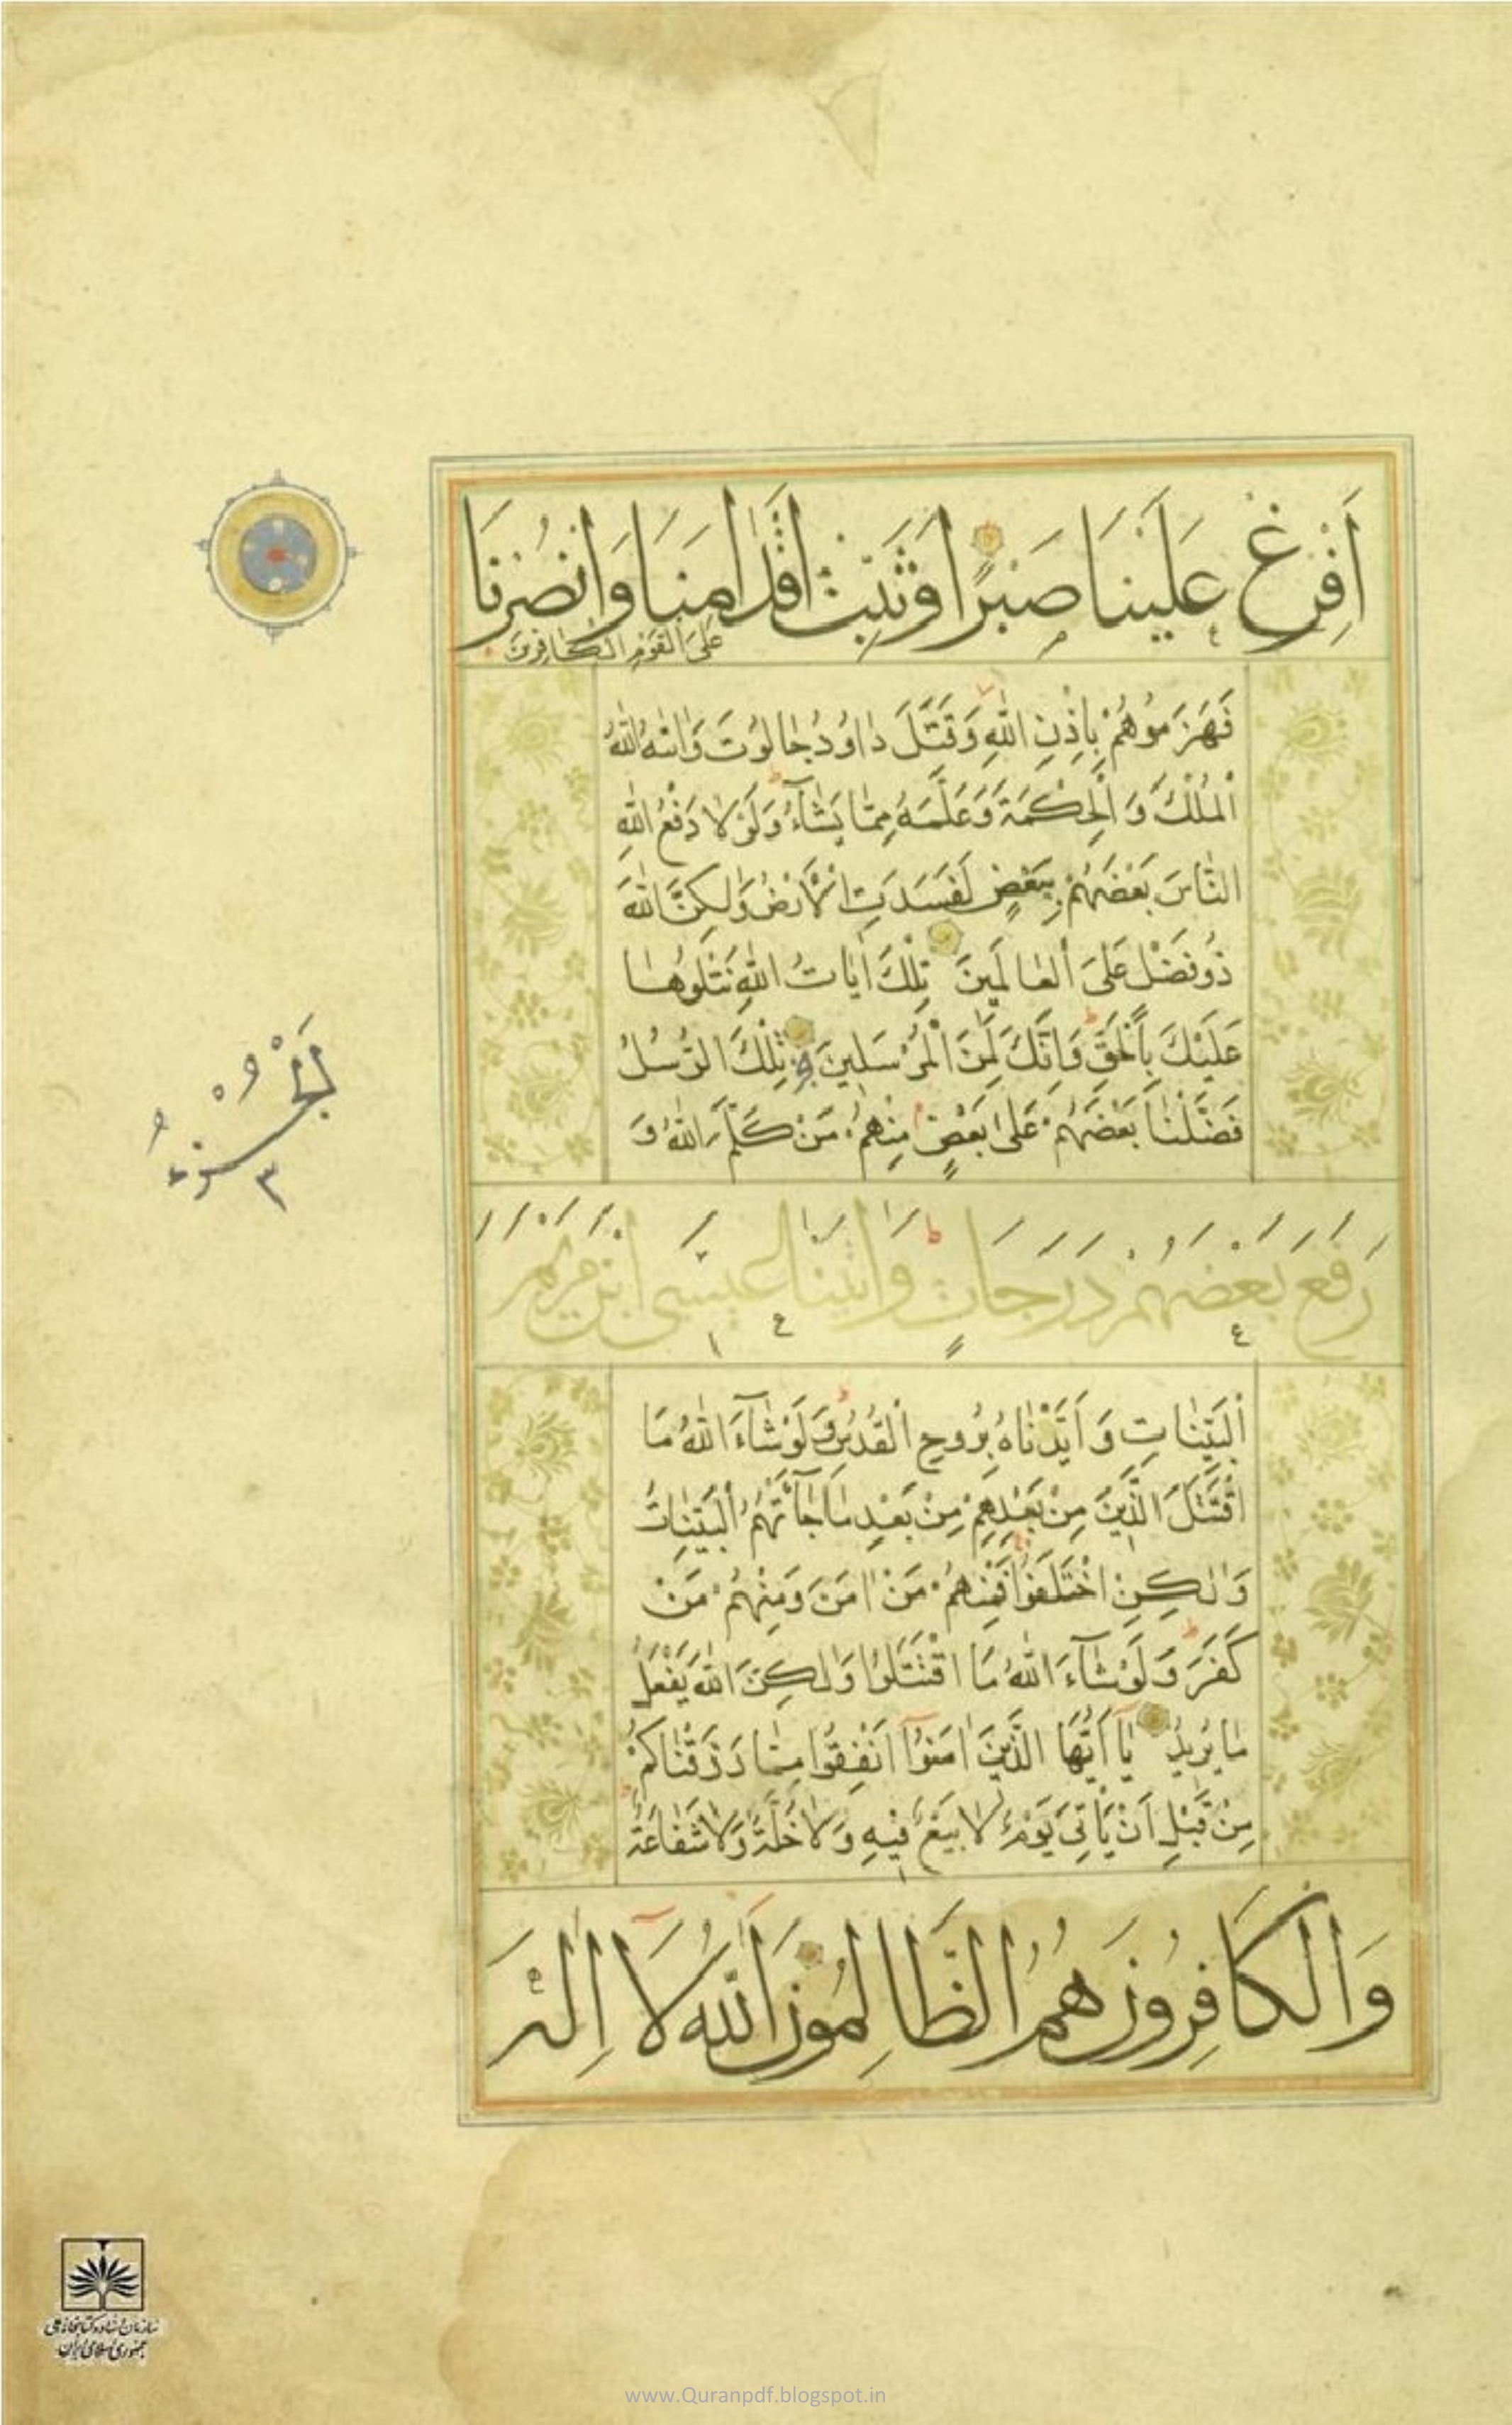 اَفْرِغْ عَلَيْنَا صَبْرًا وَثَبِّتْ اَقْدَامَنَا وَانْصُرْنَا
عَلَى الْقَوْمِ الْكَافِرِينَ
فَهَزَمُوهُمْ بِاِذْنِ اللّٰهِ وَقَتَلَ دَاوُدُ جَالُوتَ وَاٰتٰيهُ اللّٰهُ
الْمُلْكَ وَ الْحِكْمَةَ وَعَلَّمَهُ مِمَّا يَشَآءُ وَلَوْلَا دَفْعُ اللّٰهِ
النَّاسَ بَعْضَهُمْ بِبَعْضٍ لَفَسَدَتِ الْاَرْضُ وَلٰكِنَّ اللّٰهَ
ذُو فَضْلٍ عَلَى الْعَالَمِينَ تِلْكَ اٰيَاتُ اللّٰهِ نَتْلُوهَا
عَلَيْكَ بِالْحَقِّ وَاِنَّكَ لَمِنَ الْمُرْسَلِينَ تِلْكَ الرُّسُلُ
فَضَّلْنَا بَعْضَهُمْ عَلٰى بَعْضٍ مِنْهُمْ مَنْ كَلَّمَ اللّٰهُ وَ
رَفَعَ بَعْضَهُمْ دَرَجَاتٍ وَاٰتَيْنَا عِيسَى ابْنَ مَرْيَمَ
الْبَيِّنَاتِ وَ اَيَّدْنَاهُ بِرُوحِ الْقُدُسِ وَلَوْ شَآءَ اللّٰهُ مَا
اقْتَتَلَ الَّذِينَ مِنْ بَعْدِهِمْ مِنْ بَعْدِ مَا جَآءَتْهُمُ الْبَيِّنَاتُ
وَلٰكِنِ اخْتَلَفُوا فَمِنْهُمْ مَنْ اٰمَنَ وَمِنْهُمْ مَنْ
كَفَرَ وَلَوْ شَآءَ اللّٰهُ مَا اقْتَتَلُوا وَلٰكِنَّ اللّٰهَ يَفْعَلُ
مَا يُرِيدُ يَا اَيُّهَا الَّذِينَ اٰمَنُوا اَنْفِقُوا مِمَّا رَزَقْنَاكُمْ
مِنْ قَبْلِ اَنْ يَاْتِىَ يَوْمٌ لَا بَيْعٌ فِيهِ وَلَا خُلَّةٌ وَلَا شَفَاعَةٌ
وَالْكَافِرُونَ هُمُ الظَّالِمُونَ اَللّٰهُ لَا اِلٰهَ
٣
سازمان اسناد و کتابخانه ملی
جمهوری اسلامی ایران
www.Quranpdf.blogspot.in